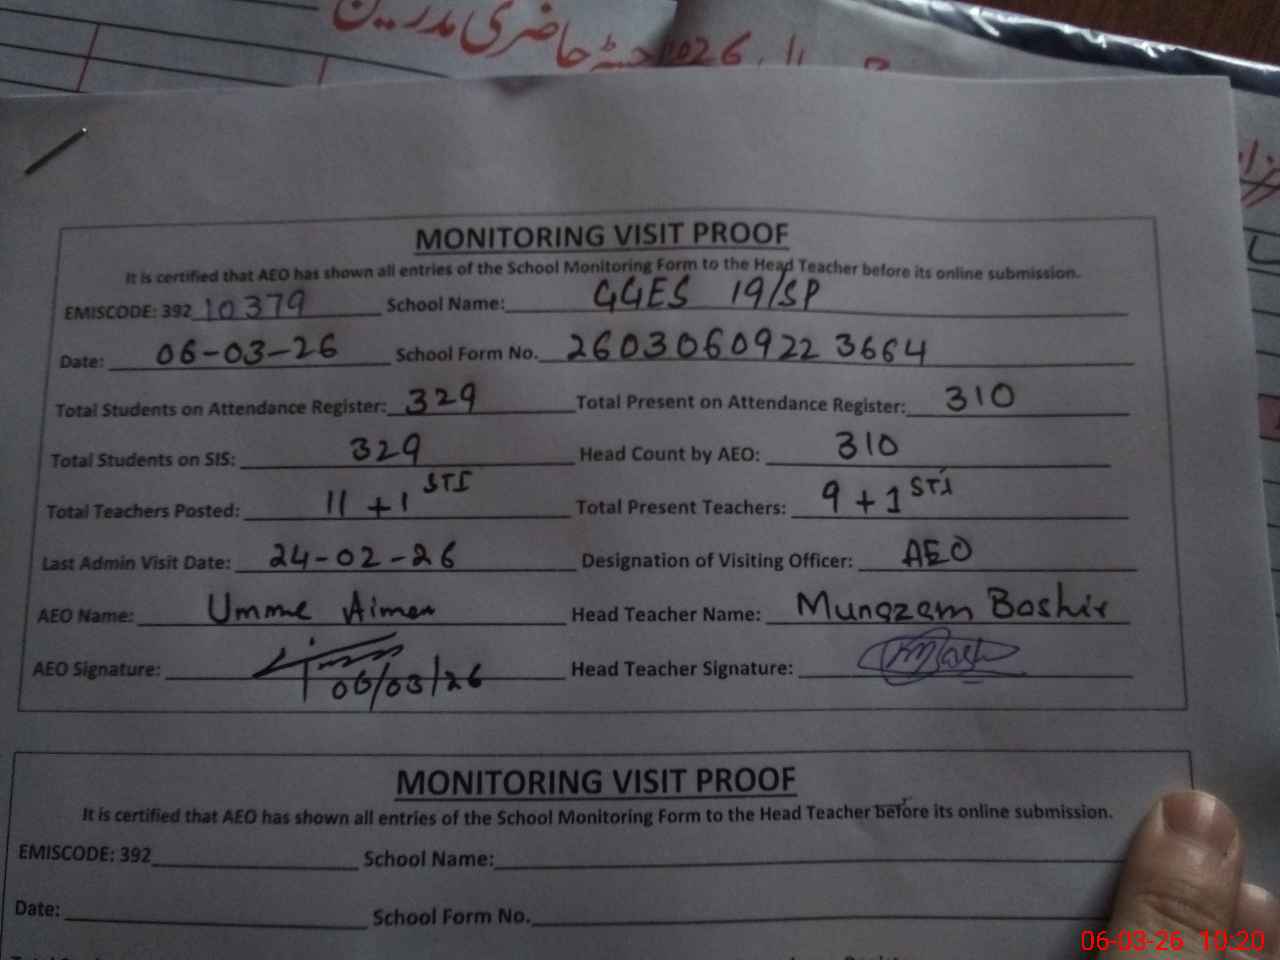 حاضری مدرسین
2026
MONITORING VISIT PROOF
It is certified that AEO has shown all entries of the School Monitoring Form to the Head Teacher before its online submission.
EMISCODE: 392 10379 School Name: GGES 19/SP
Date: 06-03-26 School Form No. 2603060922 3664
Total Students on Attendance Register: 329 Total Present on Attendance Register: 310
Total Students on SIS: 329 Head Count by AEO: 310
Total Teachers Posted: 11 + 1 STI Total Present Teachers: 9 + 1 STI
Last Admin Visit Date: 24-02-26 Designation of Visiting Officer: AEO
AEO Name: Umme Aimen Head Teacher Name: Munazam Bashir
AEO Signature: 06/03/26 Head Teacher Signature:
MONITORING VISIT PROOF
It is certified that AEO has shown all entries of the School Monitoring Form to the Head Teacher before its online submission.
EMISCODE: 392 School Name:
Date: School Form No.
06-03-26 10:20